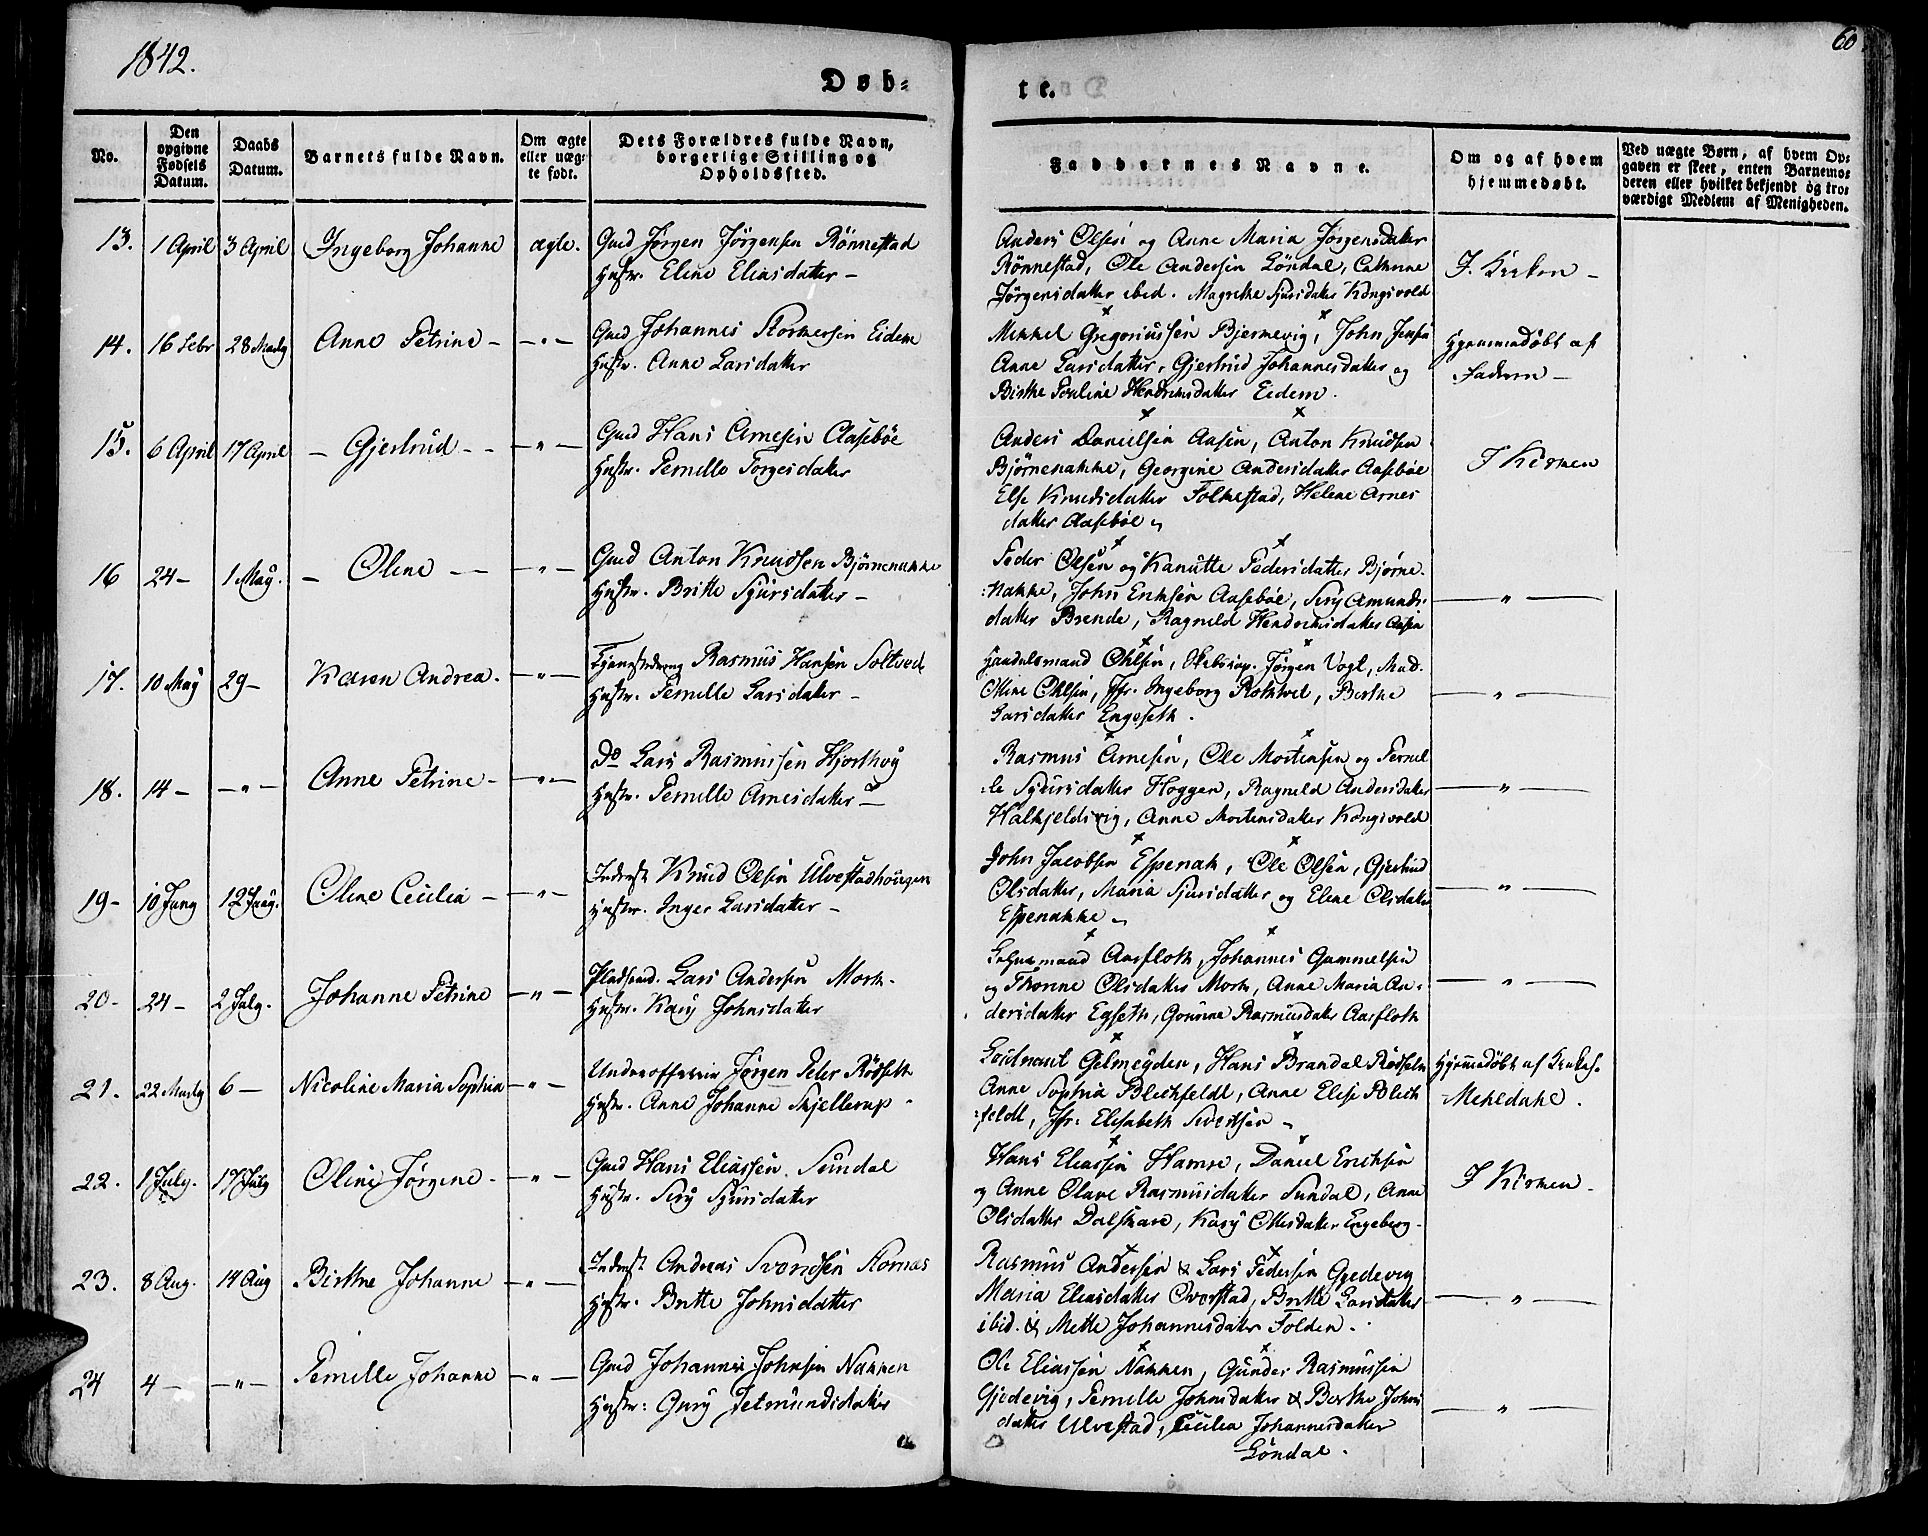 1842.
60
Døb-
te.
No.
Den opgivne Fødsels Datum.
Daabs Datum.
Barnets fulde Navn.
Om ægte eller uæg- te født.
Dets Forældres fulde Navn, borgerlige Stilling og Opholdssted.
Faddernes Navne.
Om og af hvem hjemmedøbt.
Ved uægte Børn, af hvem Op- gaven er skeet, enten Barnemo- deren eller hvilket bekjendt og tro- værdigt Medlem af Menigheden.
13. 1 April 3 April Ingeborg Johanne ægte. Gmd Jørgen Jørgensen Rönnestad
Hustr. Eline Eliasdatter -
Anders Olsen og Anne Maria Jørgensdatter
Rönnestad, Ole Andersen Löndal, Cathrine
Jörgensdatter ibid. Magrethe Sjursdatter Kongsvold
I. Kirken -
14. 16 Febr 28 Martz Anne Petrine - - " - Gmd Johannes Stormersen Eidem
Hustr. Anne Larsdatter
Mikkel Gregoriussen Bjernevig, John Jensen
Anne Larsdatter, Gjertrud Johannesdatter og
Birthe Pouline Hendriksdatter Eidem.
Hjemmedöbt af
Faderen -
15. 6 April 17 April - Gjertrud - - - " - Gmd Hans Arnesen Aaseböe
Hustr. Pernille Torgesdatter
Anders Danielsen Aasen, Anton Knudsen
Björnenakke, Georgine Andersdatter Aaseböe
Else Knudsdatter Folkestad, Helene Arnes
datter Aaseböe
I Kirken
16 24 - 1 May. - Oline - - - " - Gmd Anton Knudsen Björnenakke
Hustr. Britte Sjursdatter -
Peder Olsen og Kanutte Pedersdatter Björne-
nakke, John Eriksen Aaseböe, Siry Amunds-
datter Brende, Ragnild Hendriksdatter Aasen
- " -
17. 10 May 29 - Karen Andrea. - " - Tjenestedreng Rasmus Hansen Soltvedt
Hustr. Pernille Larsdatter -
Handelsmand Ohlsen, Jørgen Vogt, Mad.
Oline Ohlsen, Jfr. Ingeborg Rotwel, Berthe
Larsdatter Engeseth.
- " -
18. 14 - - " - Anne Petrine - - " - Do Lars Rasmussen Hjorthoug
Hustr. Pernille Arnesdatter -
Rasmus Arnesen, Ole Mortensen og Pernil
-le Sjursdatter Hoggen, Ragnild Andersdatter
Halkjeldsvig, Anne Mortensdatter Kongsvold
- " -
19 - 10 Juny 12 Juny. Oline Cecilia - - " - Inderst Knud Olsen Ulvestadhougen
Hustr. Inger Larsdatter -
John Jacobsen Espenak, Ole Olsen, Gjertrud
Olsdatter, Maria Sjursdatter og Eline Olsdatter
Espenakke
- " -
20 - 24 - 2 July. Johanne Petrine - " - Pladsmd. Lars Andersen Mork.
Hustr. Kary Johnsdatter
Aarfloth, Johannes Gammelsen
og Thorine Olsdatter Mork, Anne Maria An-
dersdatter Egseth, Gounne Rasmusdatter Aarfloth
- " -
21. 22 Martz 6 - Nicoline Maria Sophia - " - Underofficeer Jørgen Peter Rödseth
Hustr. Anne Johanne Skjellerup -
Leutnant Gelmeyden, Hans Brandal Rødseth
Anne Sophia Blechfeldt, Anne Elise Blech
-feldt, Jfr. Elisabeth Sivertsen
Hjemmedöbt af Kirkes.
Mehldahl.
22. 1 July. 17 July Oline Jørgine - - " - Gmd Hans Eliassen Sundal
Hustr. Siry Sjursdatter
Hans Eliassen Hamre, Daniel Eriksen
og Anne Olave Rasmusdatter Sundal, Anne
Olsdatter Dalskare, Kary Ottesdatter Engeberg -
I Kirken -
23. 8 Aug. 14 Aug Birthe Johanne - " - Inderst Andreas Svendsen Stornæs
Hustr. Britte Johnsdatter
Rasmus Andersen & Lars Pedersen Gjedevig
Maria Eliasdatter Overstad, Britte Larsdatter
ibid. & Mette Johannesdatter Folden.
- " -
24 4 - - " - Pernille Johanne - " - Gmd Johannes Johnsen Nakken
Hustr: Gury Jetmundsdatter
Ole Eliassen Nakken, Gunder Rasmussen
Gjedevig, Pernille Johnsdatter & Berthe Johns
datter Ulvestad, Cecilia Johannesdatter
Löndal.
- " -